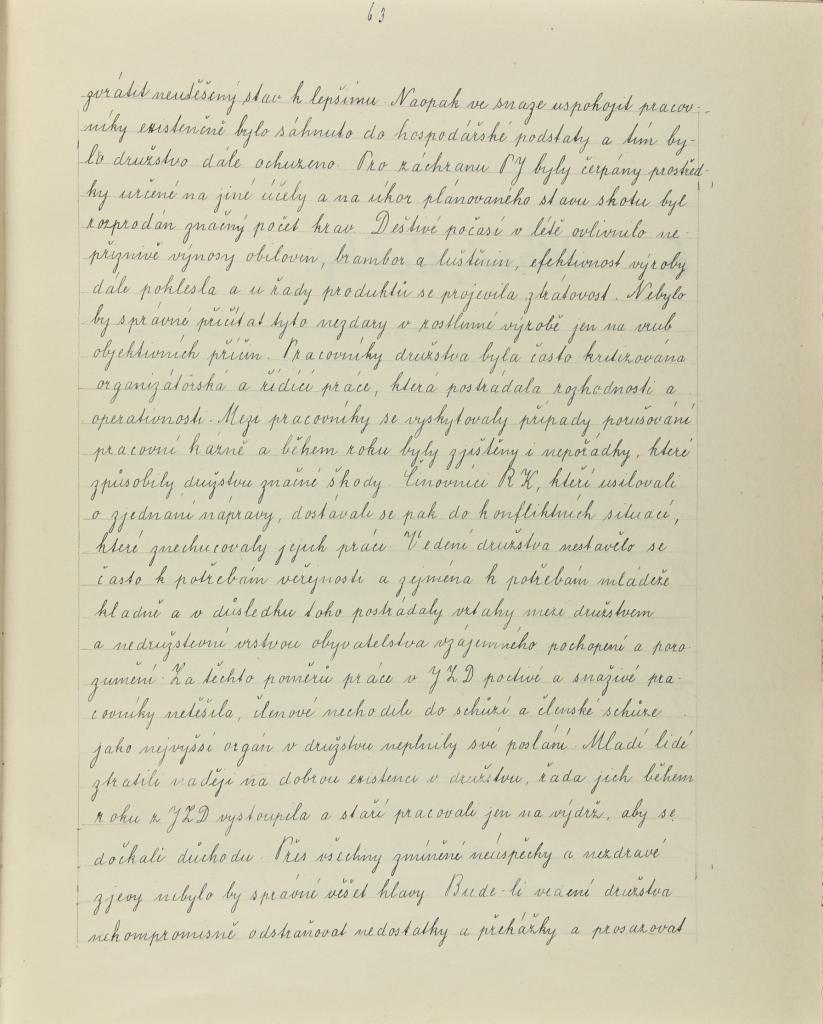 63
zvrátit neutěšený stav k lepšímu. Naopak ve snaze uspokojit pracov-
níky existenčně bylo sáhnuto do hospodářské podstaty a tím by-
lo družstvo dále ochuzeno. Pro záchranu PJ byly čerpány prostřed-
ky určené na jiné účely a na úkor plánovaného stavu skotu byl
rozprodán značný počet krav. Deštivé počasí v létě ovlivnilo ne-
příznivě výnosy obilovin, brambor a luštěnin, efektivnost výroby
dále poklesla a u řady produktů se projevila ztrátovost. Nebylo
by správné přičítat tyto nezdary v rostlinné výrobě jen na vrub
objektivních příčin. Pracovníky družstva byla často kritizována
organizátórská a řídící práce, která postrádala rozhodnosti a
operativnosti. Mezi pracovníky se vyskytovaly případy porušování
pracovní kázně a během roku byly zjištěny i nepořádky, které
způsobily družstvu značné škody. Činovníci RK, kteří usilovali
o zjednání nápravy, dostávali se pak do konfliktních situací,
které znechucovaly jejich práci. Vedení družstva nestavělo se
často k potřebám veřejnosti a zejména k potřebám mládeže
kladně a v důsledku toho postrádaly vztahy mezi družstvem
a nedružstevní vrstvou obyvatelstva vzájemného pochopení a poro-
zumění. Za těchto poměrů práce v JZD poctivé a snaživé pra-
covníky netěšila, členové nechodili do schůzí a členské schůze
jako nejvyšší orgán v družstvu neplnily své poslání. Mladí lidé
ztratili naději na dobrou existenci v družstvu, řada jich během
roku z JZD vystoupila a staří pracovali jen na výdrž, aby se
dočkali důchodu. Přes všechny zmíněné neúspěchy a nezdravé
zjevy nebylo by správné věšet hlavy. Bude-li vedení družstva
nekompromisně odstraňovat nedostatky a překážky a prosazovat